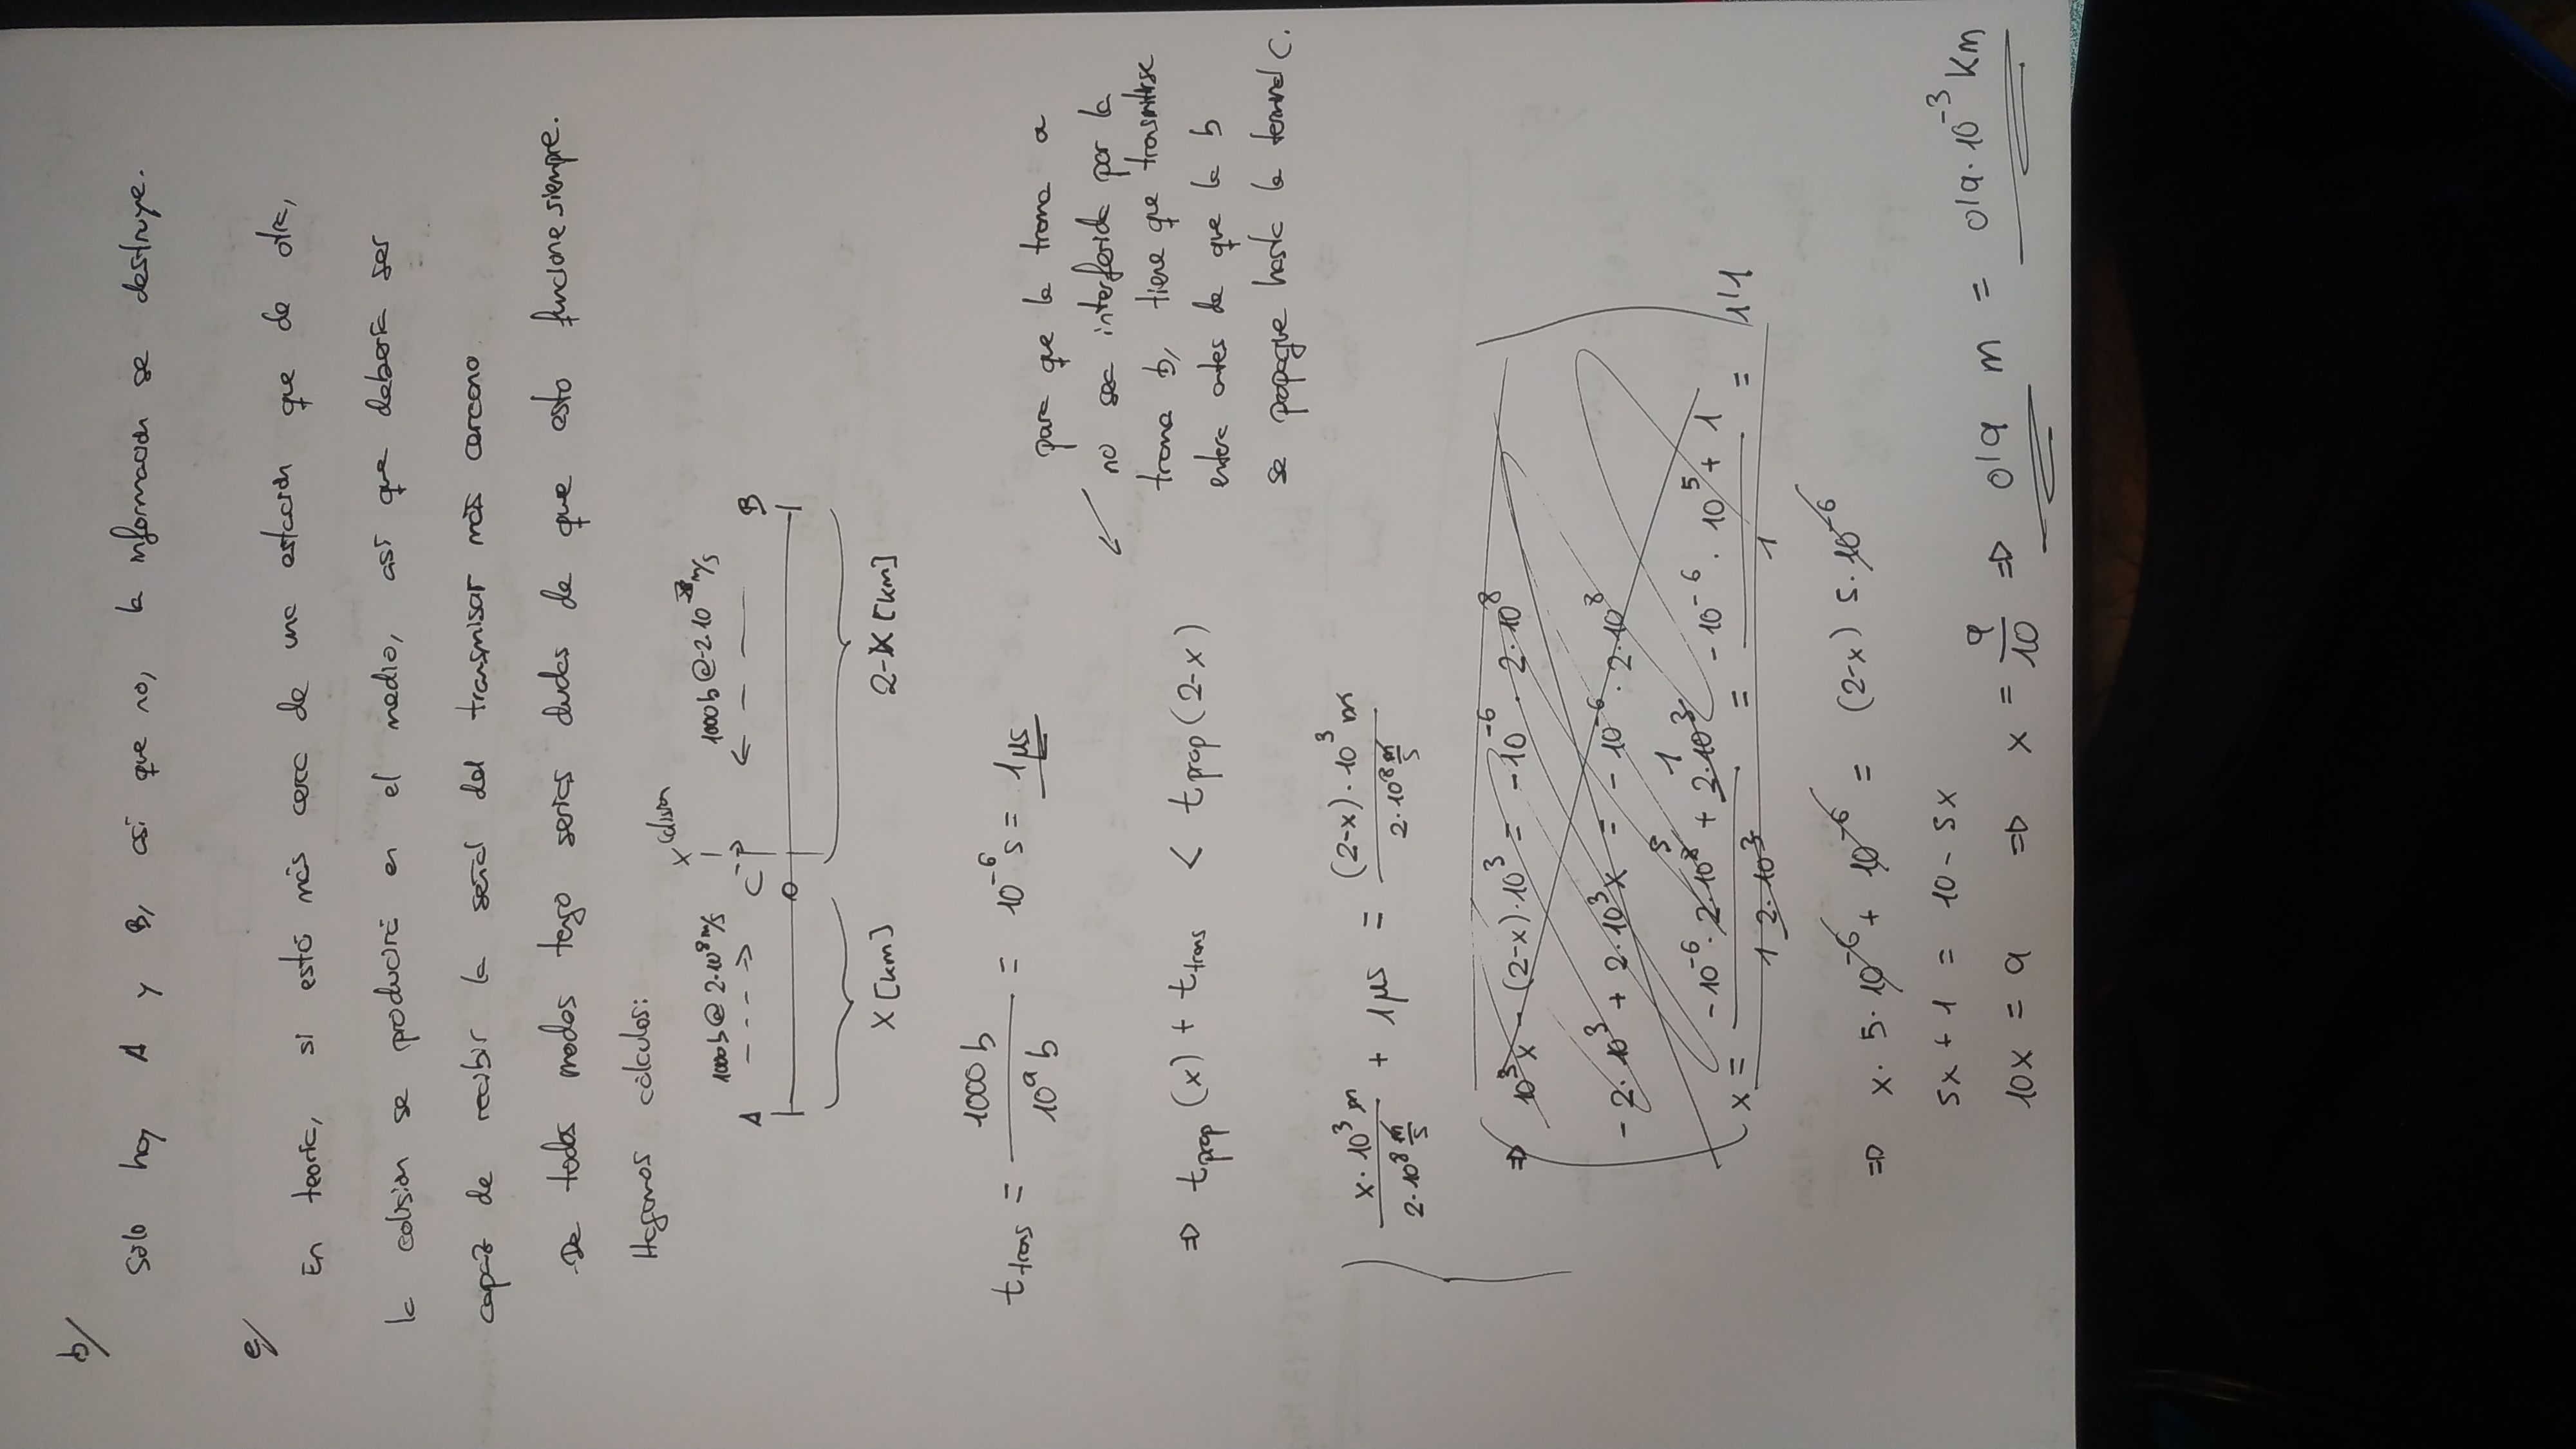 b/
Solo hay A y B, así que no, la información se destruye.
c/
En teoría, si está más cerca de una estación que de otra,
la colisión se producirá en el medio, así que debería ser
capaz de recibir la señal del transmisor más cercano.
De todos modos tengo serias dudas de que esto funcione siempre.
Hagamos cálculos:
x colisión
1000b @ 2·10⁸ m/s
1000b @ -2·10 m/s
A C B
X [km] 2-X [km]
t_trans = 1000 b / 10⁹ b = 10⁻⁶ s = 1 μs
para que la trama a
no sea interferida por la
trama b, tiene que transmitirse
entera antes de que la b
se propague hasta la terminal C.
⇒ t_prop (x) + t_trans < t_prop (2-x)
x·10³ m / 2·10⁸ m/s + 1 μs = (2-x)·10³ m / 2·10⁸ m/s
⇒ 10³x - (2-x)·10³ = -10⁻⁶ · 2·10⁸
- 2·10³ + 2·10³x = -10⁻⁶ · 2·10⁸
x = -10⁻⁶ · 2·10⁸ + 2·10³ / 2·10³ = -10⁻⁶ · 10⁵ + 1 / 1 = 1'1
⇒ x · 5·10⁻⁶ + 10⁻⁶ = (2-x) 5·10⁻⁶
5x + 1 = 10 - 5x
10x = 9 ⇒ x = 9/10 ⇒ 0'9 m = 0'9·10⁻³ Km